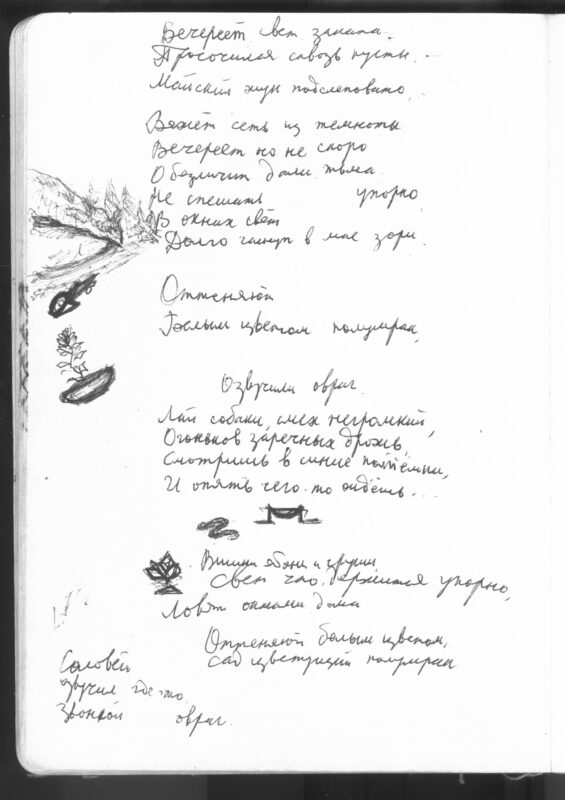 Вечереет свет заката.
Просочился сквозь кусты...
Майский жук подслеповато,
Вяжет сеть из темноты
Вечереет но не скоро
Обезличит дали тьма.
Не спешать упорно,
В окнах свет
Долго гаснут в мае зори.
Оттеняют
Белым цветом полумрак,
Озвучили овраг.
Лай собаки, смех негромкий,
Огоньков заречных дрожь,
Смотришь в синие потёмки,
И опять чего-то ждёшь...
Вишни яблони и груши
Свет что держится упорно,
Ловят окнами дома
Оттеняют белым цветом,
сад цветущий полумрак
Соловей
озвучил где-то
Звонкой овраг.